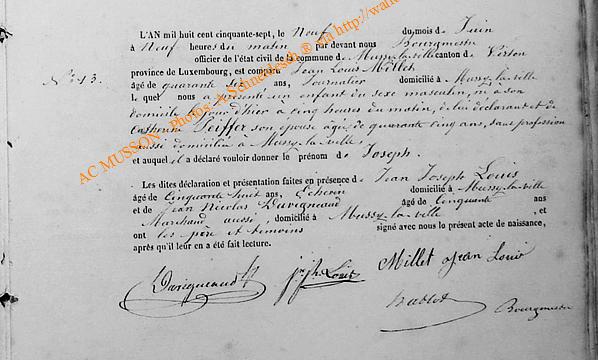 L'AN mil huit cent cinquante-sept, le Neuf du mois de Juin
à Neuf heures du matin par devant nous Bourgmestre
officier de l'état civil de la commune de Mussy-la-ville canton de Virton
N° 13. province de Luxembourg, est comparu Jean Louis Millet
âgé de quarante six ans, Journalier domicilié à Mussy-la-ville
lequel nous a présenté un enfant du sexe masculin, né à son
domicile le jour d'hier à cinq heures du matin, de lui déclarant et de
Catherine Peiffer son épouse âgée de quarante cinq ans, sans profession
aussi domiciliée à Mussy-la-ville
et auquel il a déclaré vouloir donner le prénom de Joseph.
Les dites déclaration et présentation faites en présence de Jean Joseph Louis
âgé de Cinquante huit ans, Echevin domicilié à Mussy-la-ville
et de Jean Nicolas Duvigneaud âgé de Cinquante ans
Marchand aussi, domicilié à Mussy-la-ville, et
ont les père et témoins signé avec nous le présent acte de naissance,
après qu'il leur en a été fait lecture.
Duvigneaud jph Louis Millet Jean Louis
Bourgmestre
AC MUSSON - Photos A. Schmaedesch ® via http://